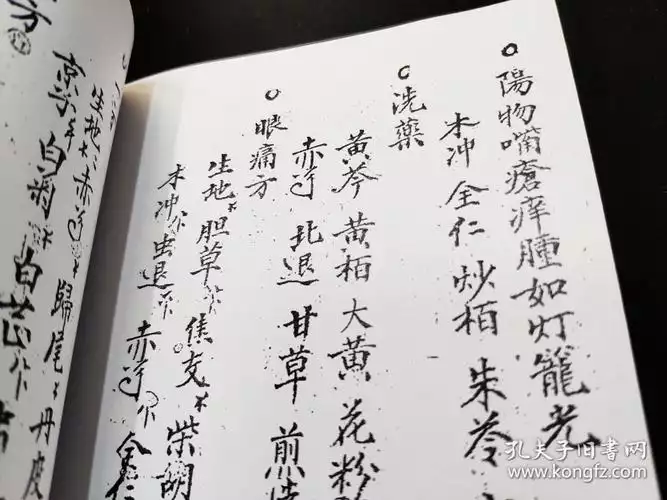 陽物嘴瘡痒腫如灯籠光
木冲 全仁 炒栢 朱苓
洗藥
黄芩 黄栢 大黄 花粉
赤芍 北退 甘草 煎
眼痛方
生地 胆草 焦支 柴胡
木冲 虫退 赤芍 全仁
方
生地 赤芍 歸尾 丹皮
白菊 白芷
孔夫子旧书网
www.kongfz.com